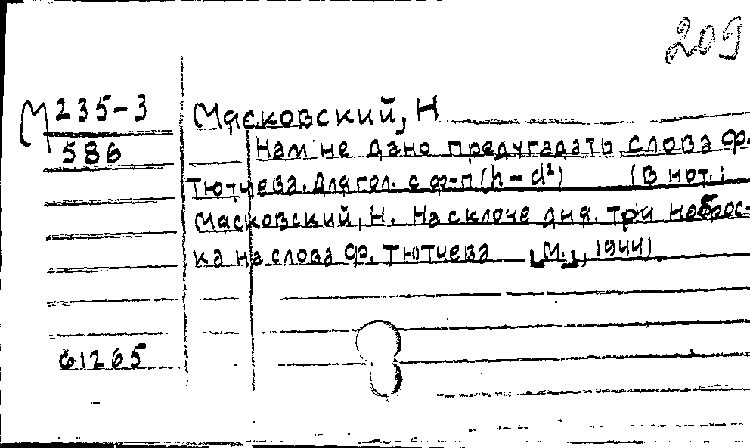 209
М 235-3
586
Мясковский, Н
Нам не дано предугадать. Слова Ф.
Тютчева. Для гол. с ф-п (h-d²) (В нот.:
Мясковский, Н. На склоне дня. Три наброс-
ка на слова Ф. Тютчева [М.], 1944).
61265